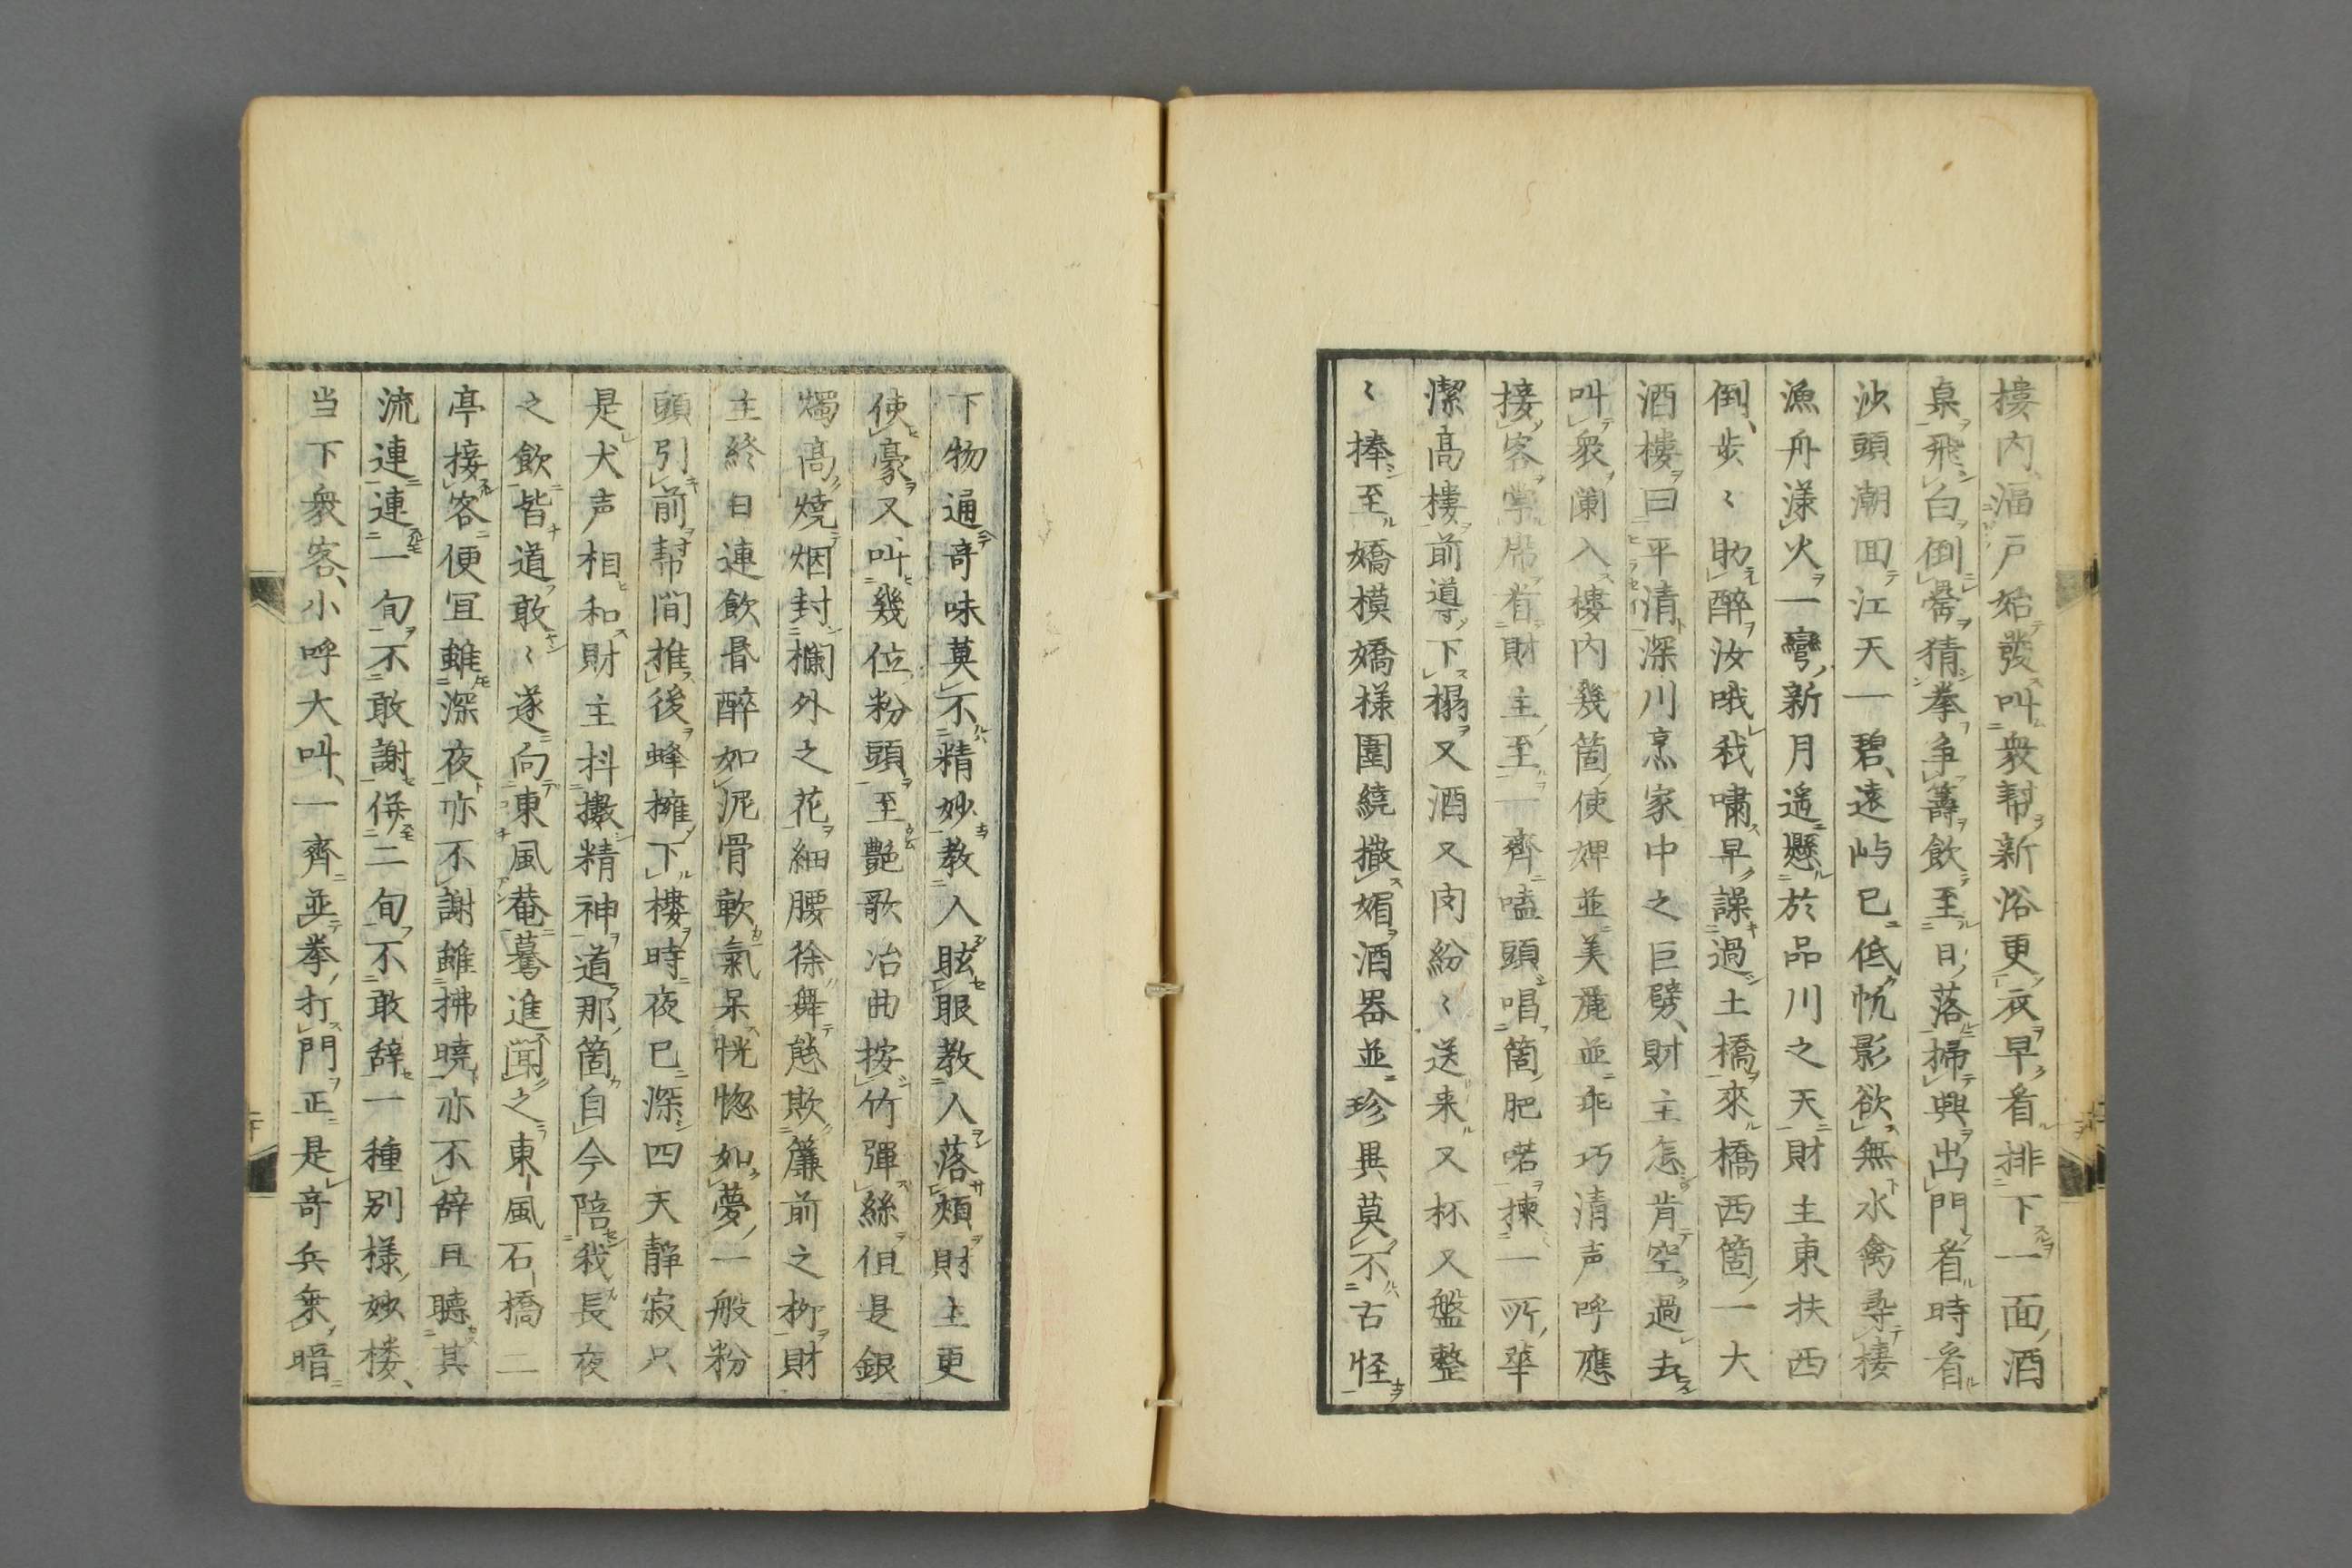 樓内湢戸始發叫衆幇新浴更衣早看排下一面酒
臬飛白倒罍猜拳争籌飲至日落掃興出門看時看
沙頭潮回江天一碧遠屿已低帆影欲無水禽尋棲
漁舟漾火一彎新月遥懸於品川之天財主東扶西
倒歩〻助醉汝哦我嘯早躁過土橋來橋西箇一大
酒樓曰平清深川烹家中之巨擘財主怎肯空過去
叫衆闌入樓内幾箇使婢並美麗並乖巧清声呼應
接客掌席看財主至一齊嗑頭唱箇肥喏揀一所華
潔高樓前導下榻又酒又肉紛〻送来又杯又盤整
〻捧至嬌模嬌様圍繞撒媚酒器並珍異莫不古怪
下物通奇味莫不精妙教人眩眼教人落頰財主更
使豪又叫幾位粉頭至艶歌冶曲按竹彈絲但是銀
燭高燒烟封欄外之花細腰徐舞態欺簾前之柳財
主終日連飲昏醉如泥骨軟氣呆恍惚如夢一般粉
頭引前幇間推後蜂擁下樓時夜已深四天静寂只
是犬声相和財主抖擻精神道那箇自今陪我長夜
之飲皆道敢〻遂向東風菴驀進聞之東風石橋二
亭接客便冝雖深夜亦不謝雖拂曉亦不辞且聴其
流連連一旬不敢謝併二旬不敢辞一種别様妙楼
当下衆客小呼大叫一齊並拳打門正是奇兵衆暗